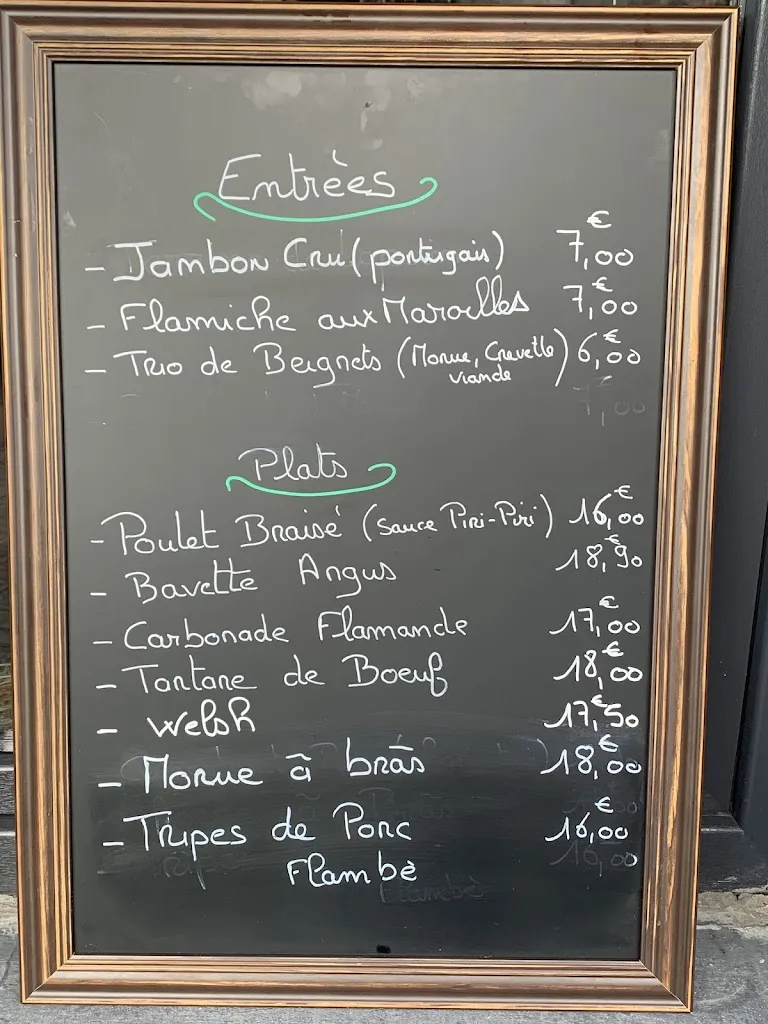 Entrèes
- Jambon Cru (portugais) 7,00 €
- Flamiche aux Maroilles 7,00 €
- Trio de Beignets (Morue, Crevette viande) 6,00 €
Plats
- Poulet Braisé (sauce Piri-Piri) 16,00 €
- Bavette Angus 18,90 €
- Carbonade Flamande 17,00 €
- Tartare de Boeuf 18,00 €
- Welsh 17,50 €
- Morue à brãs 18,00 €
- Tripes de Porc 16,00 €
Flambè